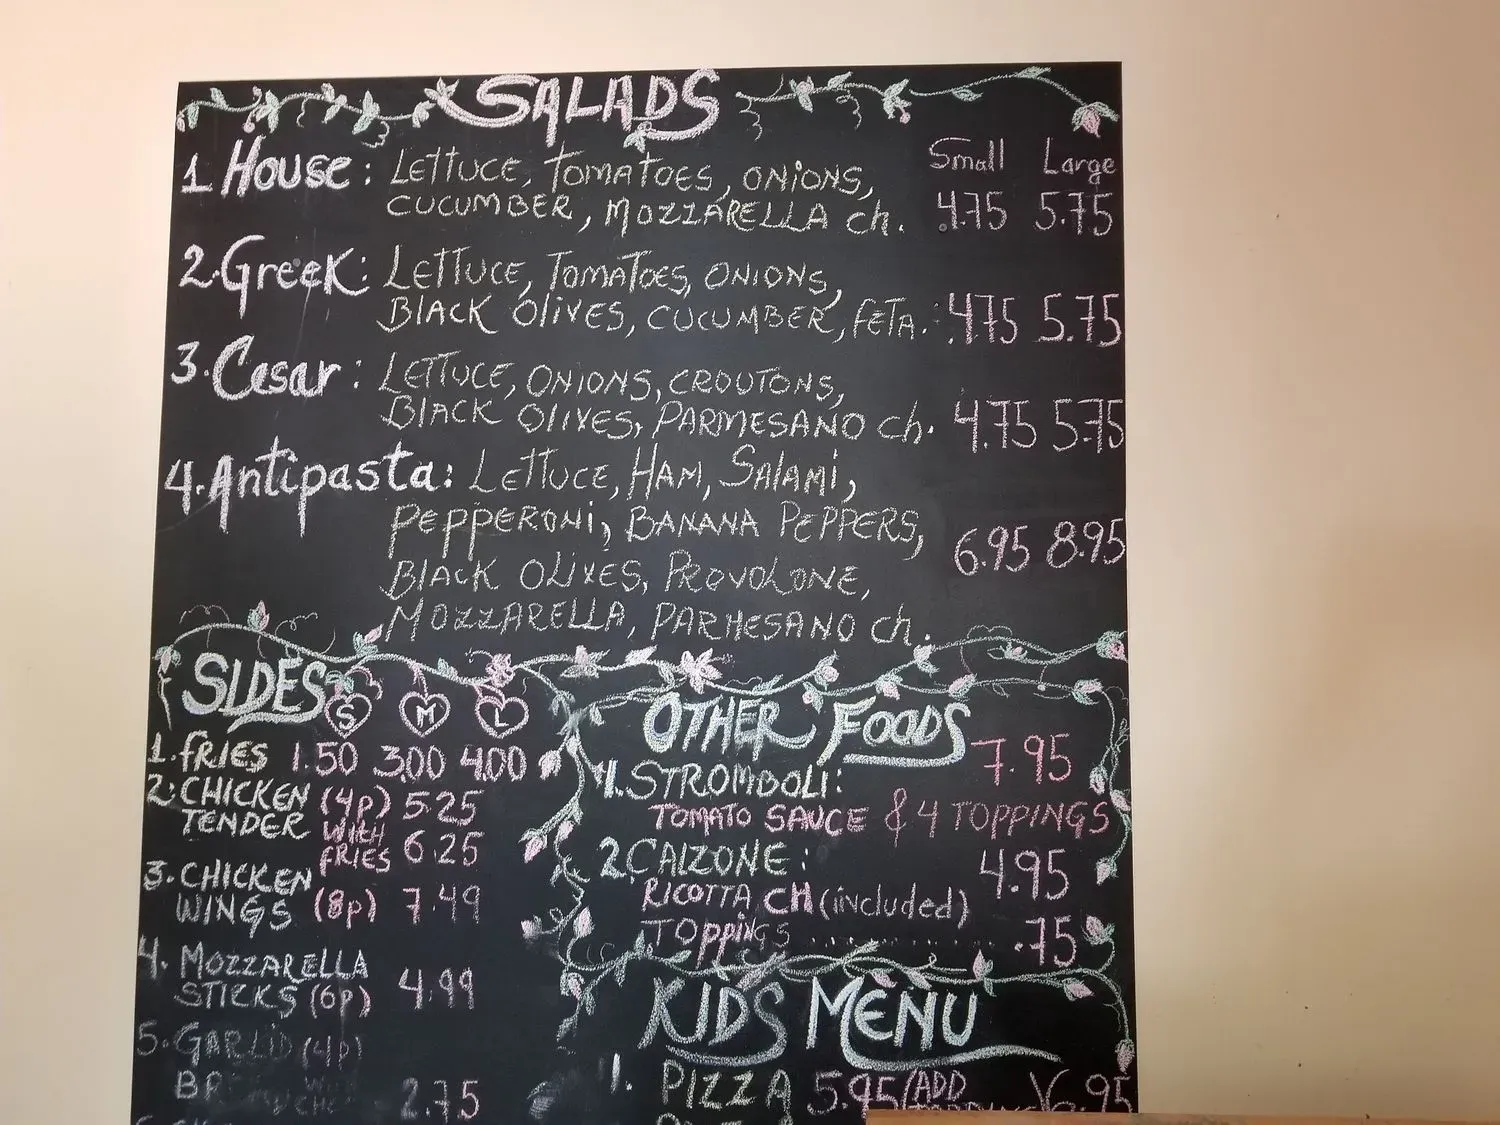 SALADS
Small Large
1 House: LETTUCE, TOMATOES, ONIONS,
CUCUMBER, MOZZARELLA ch. 4.75 5.75
2. Greek: LETTUCE, TOMATOES, ONIONS,
BLACK OLIVES, CUCUMBER, FETA. 4.75 5.75
3. Cesar: LETTUCE, ONIONS, CROUTONS,
BLACK OLIVES, PARMESANO ch. 4.75 5.75
4. Antipasta: LETTUCE, HAM, SALAMI,
PEPPERONI, BANANA PEPPERS, 6.95 8.95
BLACK OLIVES, PROVOLONE,
MOZZARELLA, PARMESANO ch.
SIDES S M L
1. FRIES 1.50 3.00 4.00
2. CHICKEN (4p) 5.25
TENDER WITH
FRIES 6.25
3. CHICKEN
WINGS (8p) 7.49
4. MOZZARELLA
STICKS (6p) 4.99
5. GARLIC (4p)
2.75
OTHER FOODS
1. STROMBOLI: 7.95
TOMATO SAUCE & 4 TOPPINGS
2. CALZONE: 4.95
RICOTTA CH (included)
TOPPINGS .......... .75
KIDS MENU
1. PIZZA 5.95 (ADD ) 6.95